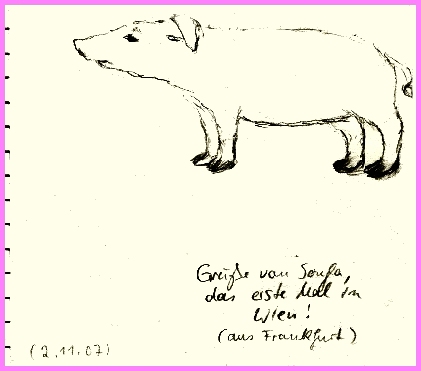 Grüße von Sonja,
das erste Mal in
Wien!
(aus Frankfurt)
(2.11.07)